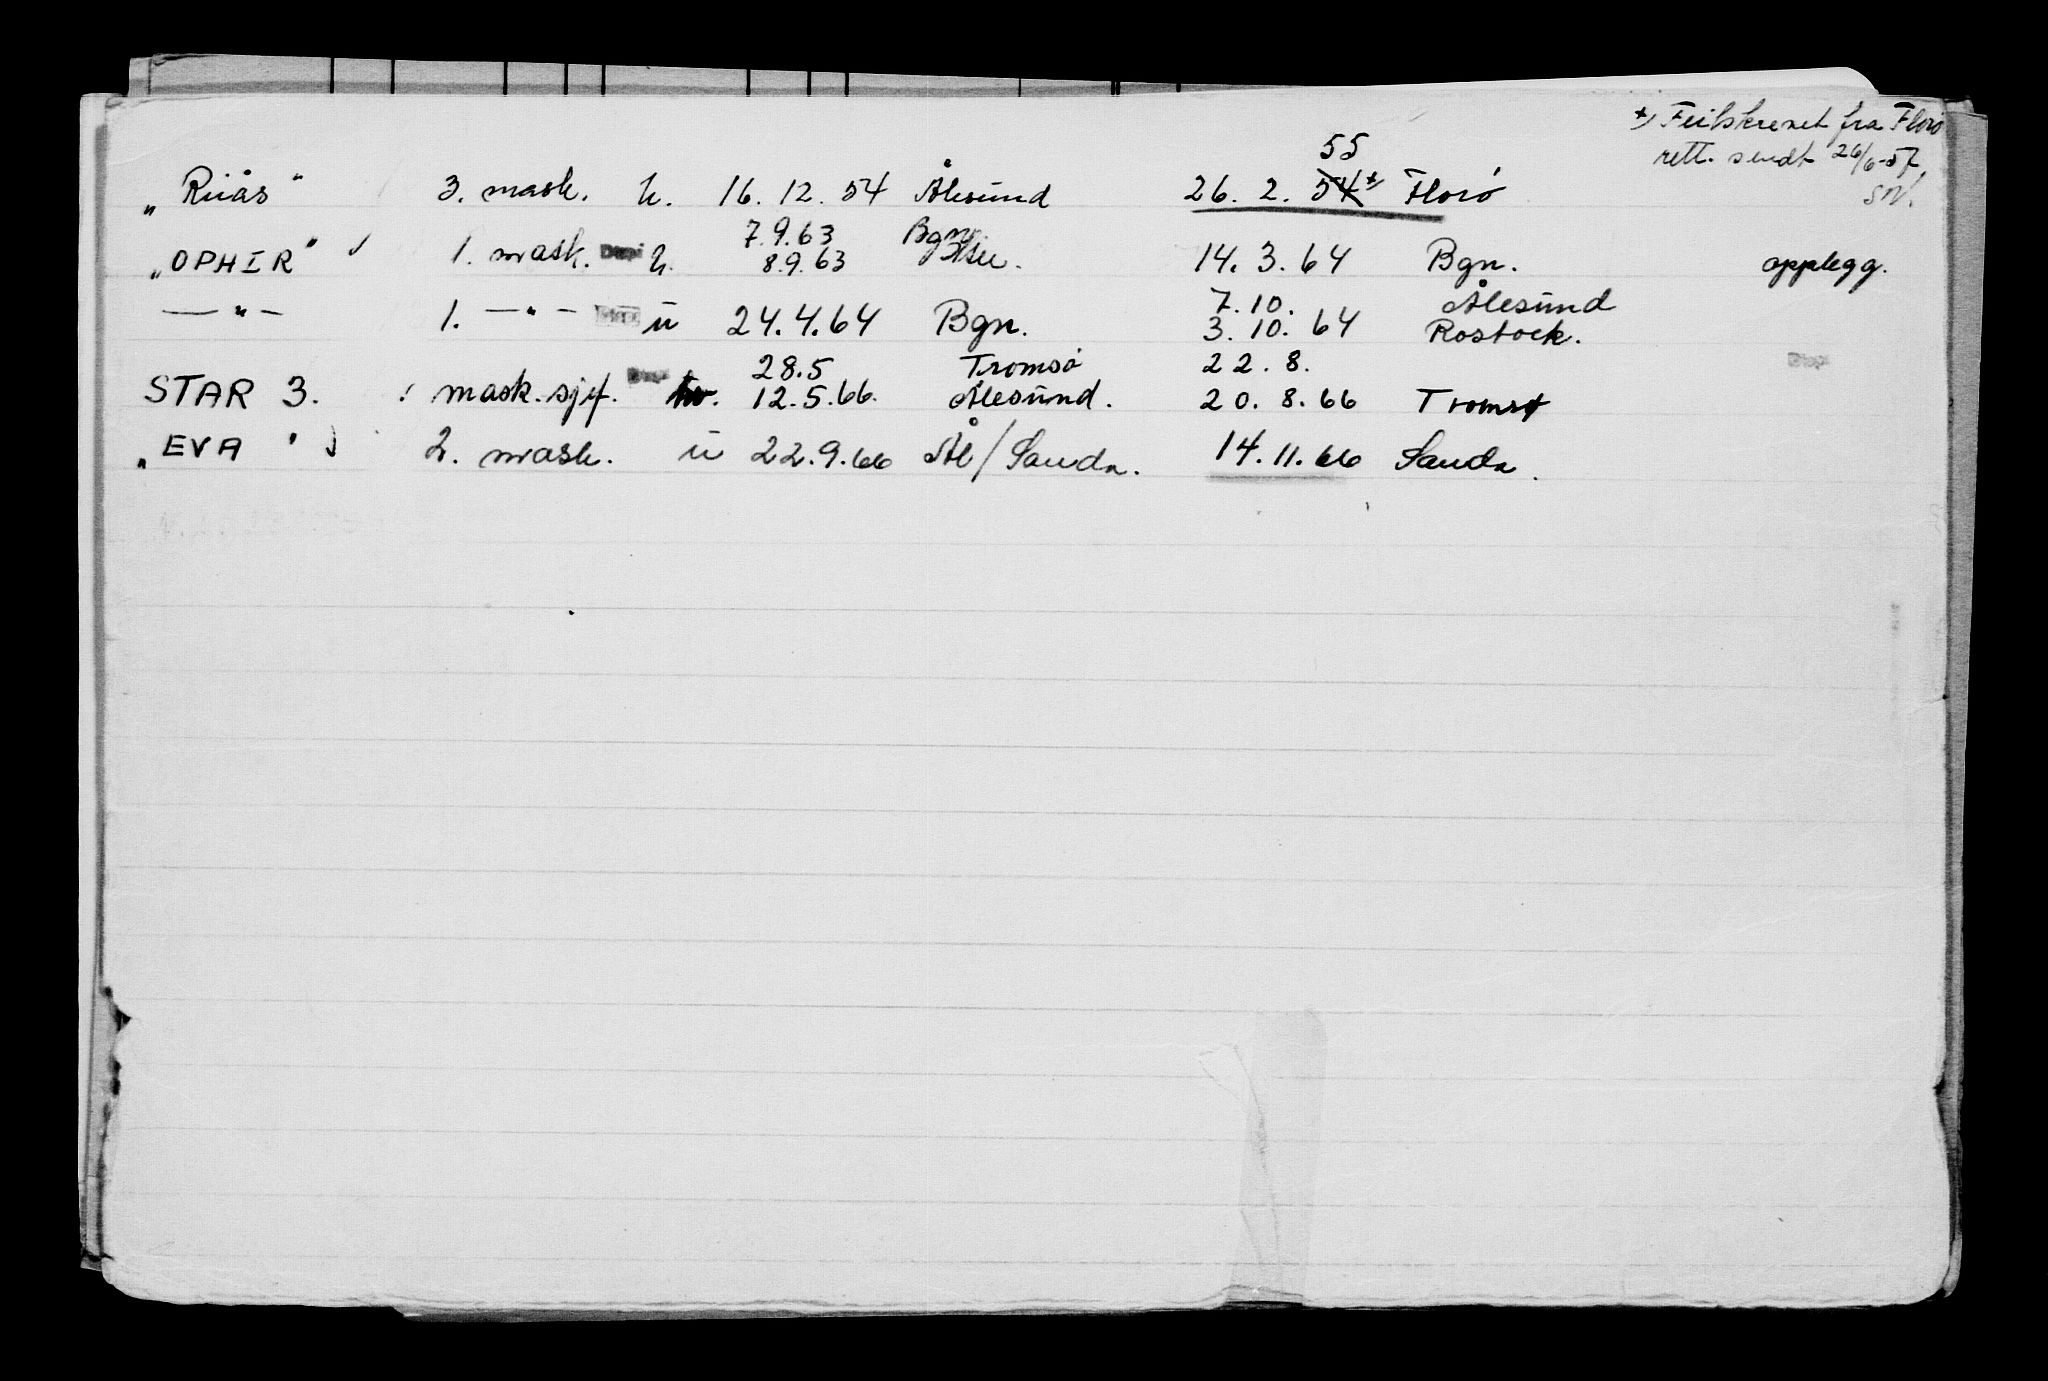 *) Feilskrevet fra Florø
rett. sendt 26/6-57
55
„Riiås" 3. mask. u. 16.12.54 Ålesund 26.2.54 *) Florø
7.9.63 Bgn.
„OPHIR" 1. mask. u. 8.9.63 14.3.64 Bgn. opplegg.
7.10. Ålesund
—"— 1. —"— u 24.4.64 Bgn. 3.10.64 Rostock.
28.5 Tromsø 22.8.
STAR 3. mask.sjef. 12.5.66. Ålesund. 20.8.66 Tromsø
„EVA" 2. mask. u 22.9.66 Ål/Sauda. 14.11.66 Sauda.